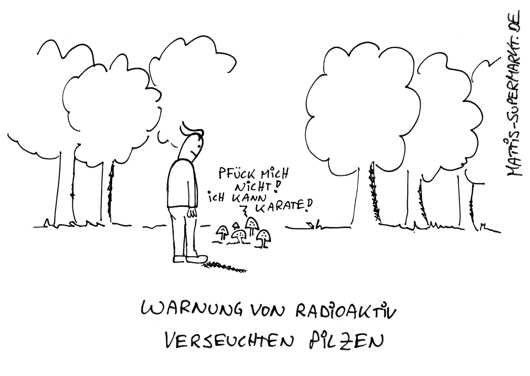 MATTIS-SUPERMARKT.DE
PFÜCK MICH
NICHT!
ICH KANN
KARATE!
WARNUNG VON RADIOAKTIV
VERSEUCHTEN PILZEN